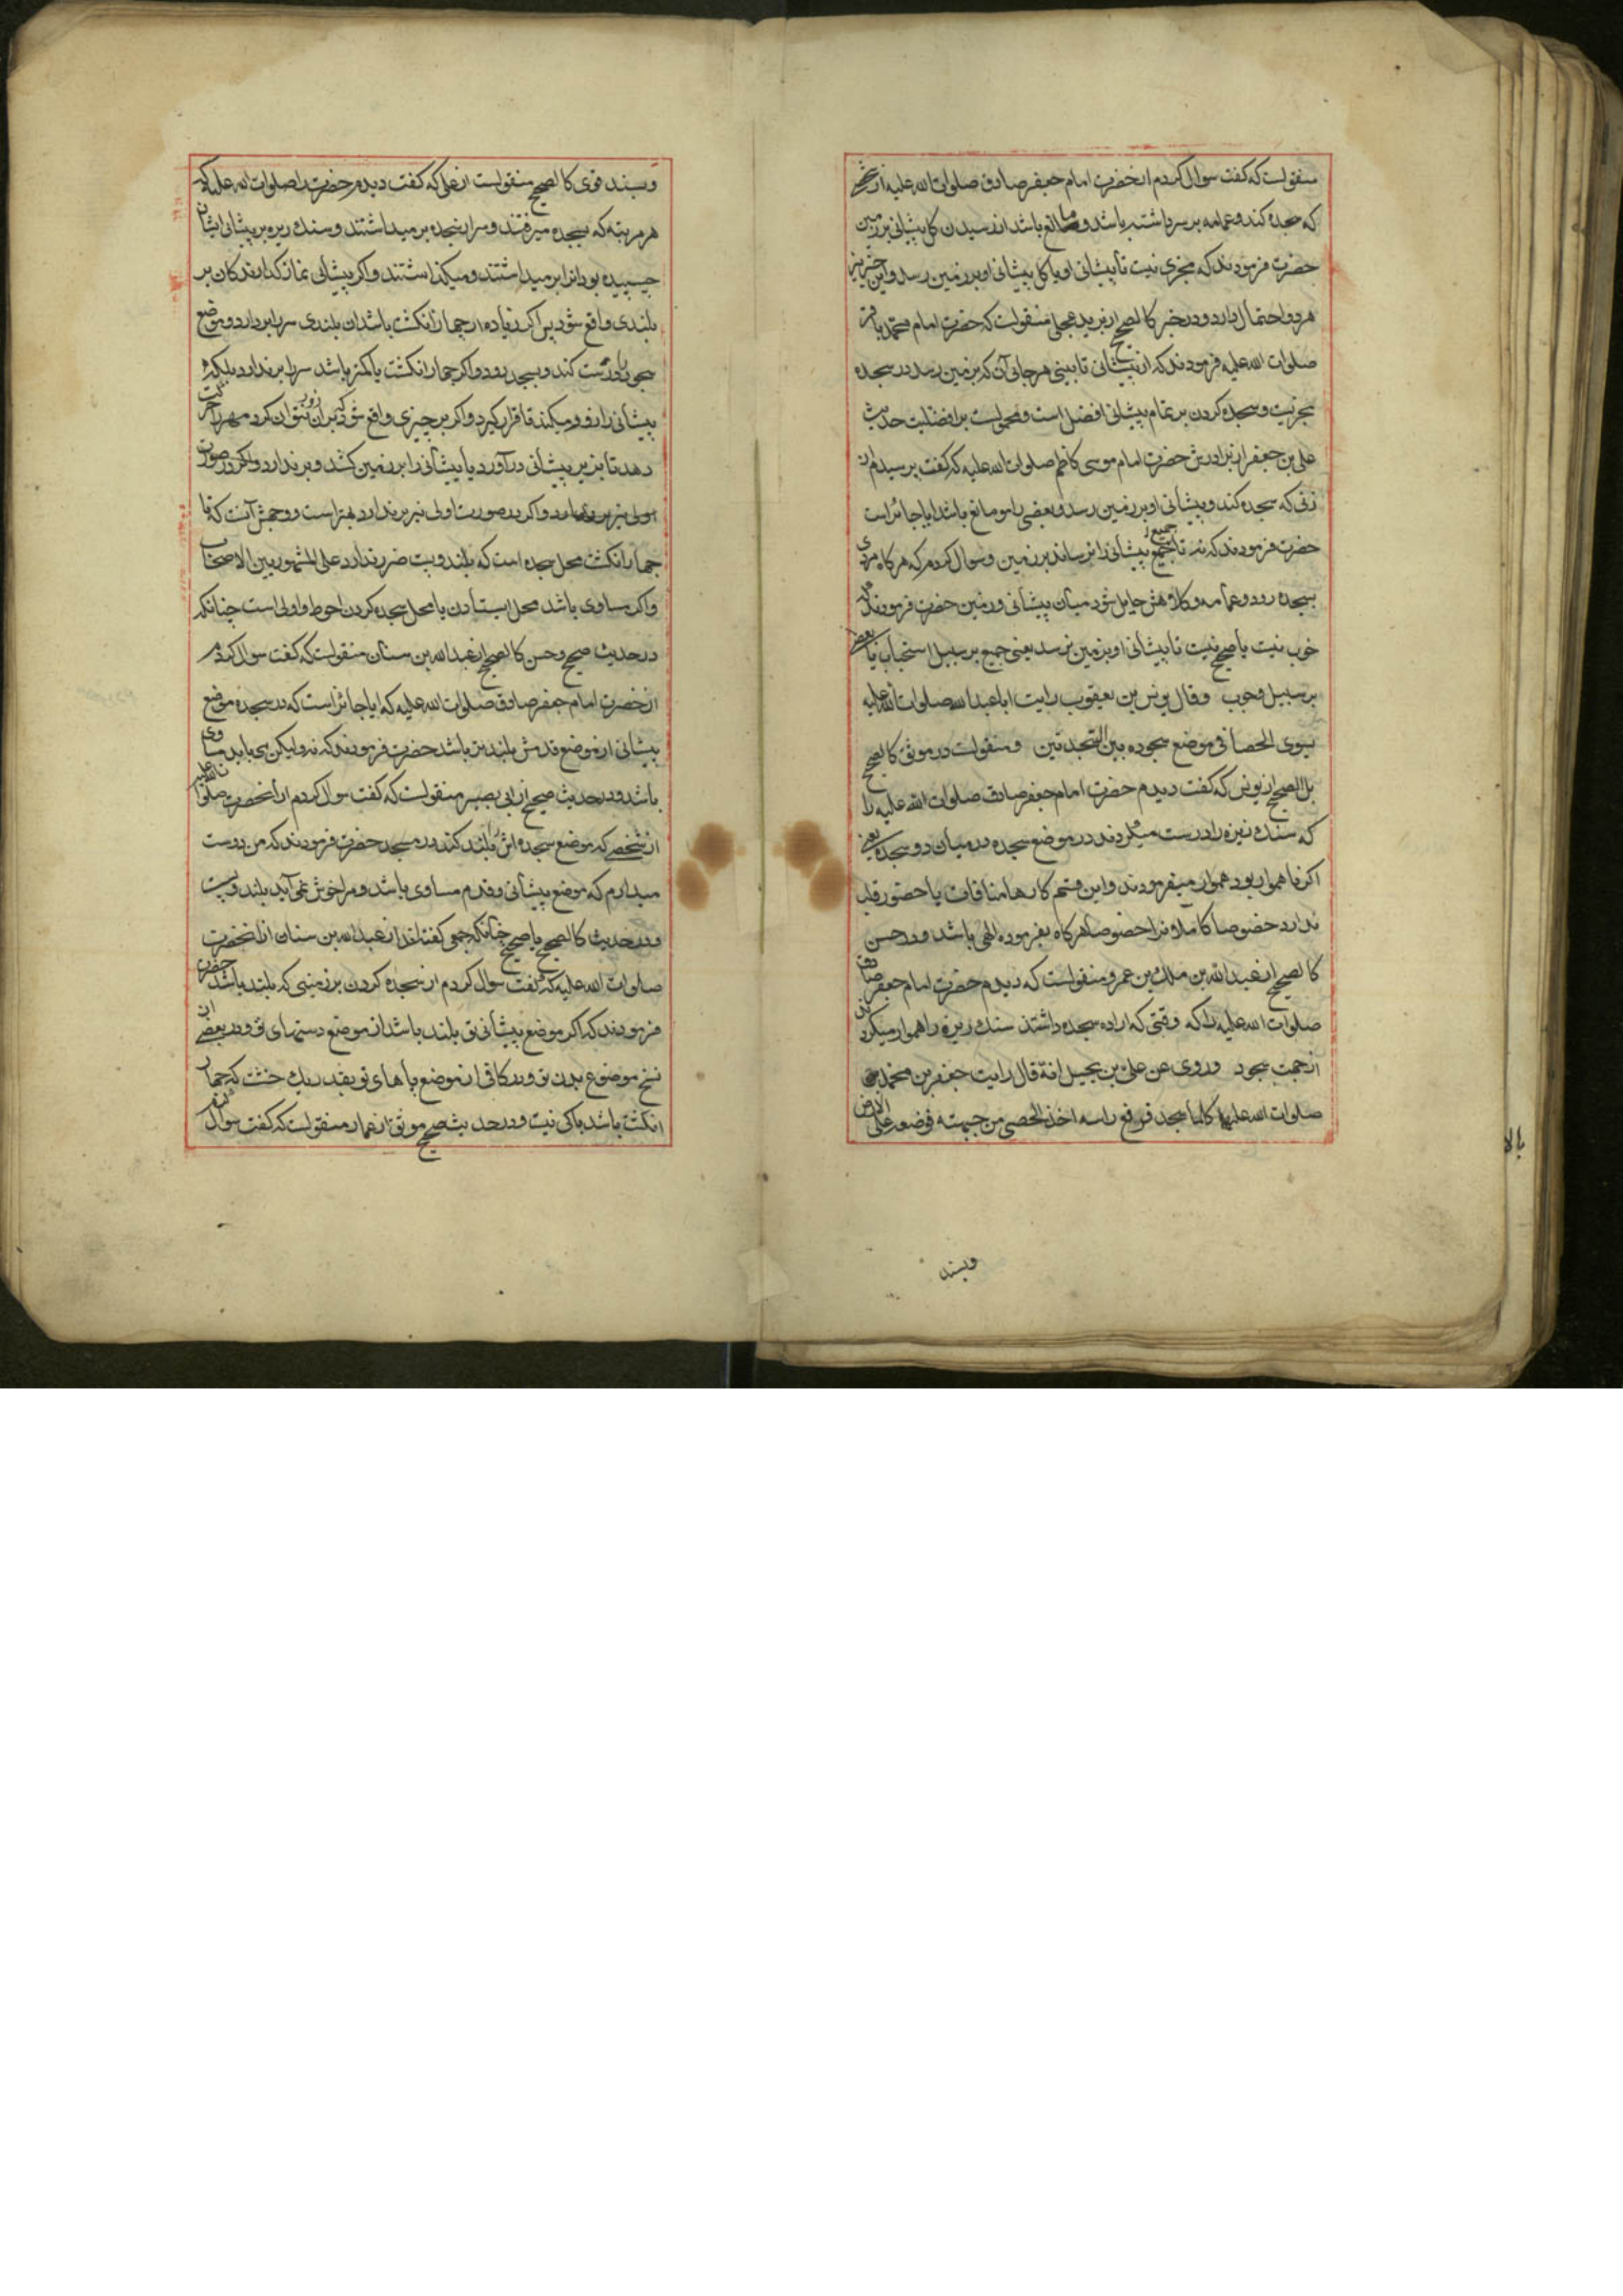 منقولست که کفت سوال کردم از حضرت امام جعفر صادق صلوات الله علیه از شخصی
که سجده کند و عمامه بر سر داشته باشد و مانع باشد از رسیدن کل پیشانی بر زمین
حضرت فرمودند که مجزی نیست تا پیشانی او یا کل پیشانی او بر زمین رسد و این خبر نیز
هر دو احتمال دارد و در خبر کالصحیح از برید عجلی منقولست که حضرت امام محمد باقر
صلوات الله علیه فرمودند که از پیشانی تا بینی هر جای آن که بر زمین رسد در سجده
مجزیست و سجده کردن بر تمام پیشانی افضل است و محمولست بر افضلیت حدیث
علی بن جعفر از برادرش حضرت امام موسی کاظم صلوات الله علیه که کفت پرسیدم از
زنی که سجده کند و پیشانی او بر زمین رسد و بعضی را مو مانع باشد ایا جائز است
حضرت فرمودند که نه تا جمیع پیشانی را نرساند بر زمین و سوال کردم که هر کاه مردی
بسجده رود و عمامه و کلاهش حایل شود میان پیشانی و زمین حضرت فرمودند که
خوب نیست یا صحیح نیست تا پیشانی او بزمین نرسد یعنی جمیع بر سبیل استحباب یا بعض
بر سبیل وجوب و قال یونس بن یعقوب رایت ابا عبد الله صلوات الله علیه
یسوی الحصا فی موضع سجوده بین السجدتین و منقولست در موثق کالصحیح
بل الصحیح از یونس که کفت دیدم حضرت امام جعفر صادق صلوات الله علیه را
که سنک ریزه را درست میکردند در موضع سجده در میان دو سجده یعنی
اکر ناهموار بود هموار میفرمودند و این قسم کارها منافات با حضور قلب
ندارد خصوصا کاملان را خصوصا هر کاه بفرموده الهی باشد و در حسن
کالصحیح از عبد الله بن ملک بن عمرو منقولست که دیدم حضرت امام جعفر صادق
صلوات الله علیه را که وقتی که اراده سجده داشتند سنک ریزه را هموار میکردند
از جهت سجود و روی عن علی بن بجیل انه قال رایت جعفر بن محمد
صلوات الله علیهما کلما سجد فرفع راسه اخذ الحصی من جبهته فوضعه علی الارض
وبسند
و بسند قوی کالصحیح منقولست از علی که کفت دیدم حضرت را صلوات الله علیه که
هر مرتبه که بسجده میرفتند و سر از سجده بر میداشتند و سنک ریزه بر پیشانی ایشان
چسپیده بود انرا بر میداشتند و میکذاشتند و اکر پیشانی نماز کذارندکان بر
بلندی واقع شود پس اکر زیاده از چهار انکشت باشد ان بلندی سر را بردارد و موضع
سجود را درست کند و بسجده رود و اکر چهار انکشت یا کمتر باشد سر را برندارد بلکه
پیشانی را فرو میکند تا قرار کیرد و اکر بر چیزی واقع شود که بر ان نتوان کرد مهر را حرکت
دهد تا بزیر پیشانی درآورد یا پیشانی را بر زمین کشد و برندارد و اکر در صورت
اولی نیز بردارد و اکر در صورت اولی نیز برندارد بهتر است و وجهش آنست که تا
چهار انکشت محل سجده است که بلند و پست ضرر ندارد علی المشهور بین الاصحاب
و اکر مساوی باشد محل ایستادن با محل سجده کردن احوط و اولی است چنانکه
در حدیث صحیح و حسن کالصحیح از عبد الله بن سنان منقولست که کفت سوال کردم
از حضرت امام جعفر صادق صلوات الله علیه که ایا جائز است که در سجده موضع
پیشانی از موضع قدمش بلندتر باشد حضرت فرمودند که نه ولیکن می باید مساوی
باشد و در حدیث صحیح از ابی بصیر منقولست که کفت سوال کردم از آنحضرت صلوات الله علیه
از شخصی که موضع سجده اش را بلند کند در مسجد حضرت فرمودند که من دوست
میدارم که موضع پیشانی و قدم مساوی باشد و مرا خوش نمی آید بلند و پست
و در حدیث کالصحیح یا صحیح چنانکه جمعی کفته اند از عبد الله بن سنان از انحضرت
صلوات الله علیه که کفت سوال کردم از سجده کردن بر زمینی که بلند باشد حضرت
فرمودند که اکر موضع پیشانی تو بلند باشد از موضع دستهای تو و در بعضی از
نسخ موضوع بدن تو و در کافی از موضع پاهای تو بقدر یک خشت که چهار
انکشت باشد باکی نیست و در حدیث صحیح موثق از عمار منقولست که کفت سوال کردم
بالا